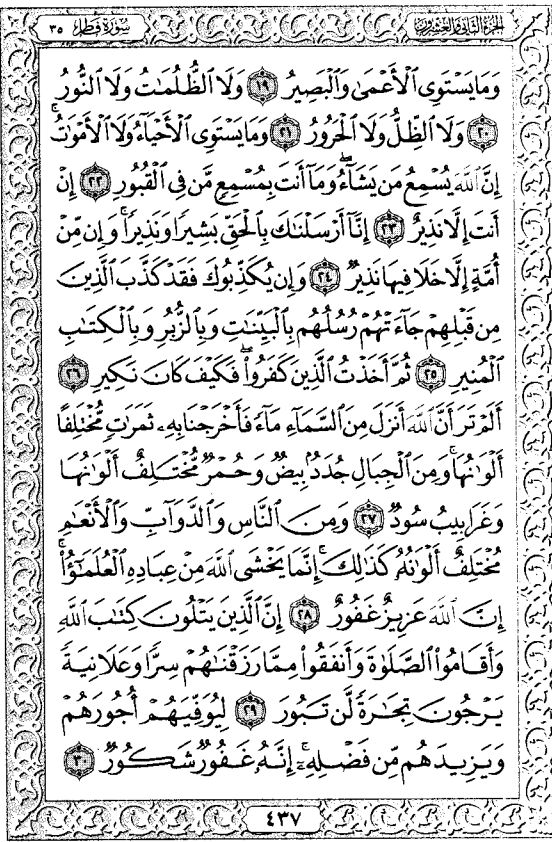 الجزء الثاني والعشرون سورة فاطر ٣٥
وَمَا يَسْتَوِي ٱلْأَعْمَىٰ وَٱلْبَصِيرُ ١٩ وَلَا ٱلظُّلُمَٰتُ وَلَا ٱلنُّورُ
٢٠ وَلَا ٱلظِّلُّ وَلَا ٱلْحَرُورُ ٢١ وَمَا يَسْتَوِي ٱلْأَحْيَآءُ وَلَا ٱلْأَمْوَٰتُۚ
إِنَّ ٱللَّهَ يُسْمِعُ مَن يَشَآءُۖ وَمَآ أَنتَ بِمُسْمِعٍ مَّن فِي ٱلْقُبُورِ ٢٢ إِنْ
أَنتَ إِلَّا نَذِيرٌ ٢٣ إِنَّآ أَرْسَلْنَٰكَ بِٱلْحَقِّ بَشِيرًا وَنَذِيرًاۚ وَإِن مِّنْ
أُمَّةٍ إِلَّا خَلَا فِيهَا نَذِيرٌ ٢٤ وَإِن يُكَذِّبُوكَ فَقَدْ كَذَّبَ ٱلَّذِينَ
مِن قَبْلِهِمْ جَآءَتْهُمْ رُسُلُهُم بِٱلْبَيِّنَٰتِ وَبِٱلزُّبُرِ وَبِٱلْكِتَٰبِ
ٱلْمُنِيرِ ٢٥ ثُمَّ أَخَذْتُ ٱلَّذِينَ كَفَرُواْۖ فَكَيْفَ كَانَ نَكِيرِ ٢٦
أَلَمْ تَرَ أَنَّ ٱللَّهَ أَنزَلَ مِنَ ٱلسَّمَآءِ مَآءً فَأَخْرَجْنَا بِهِۦ ثَمَرَٰتٍ مُّخْتَلِفًا
أَلْوَٰنُهَاۚ وَمِنَ ٱلْجِبَالِ جُدَدٌۢ بِيضٌ وَحُمْرٌ مُّخْتَلِفٌ أَلْوَٰنُهَا
وَغَرَابِيبُ سُودٌ ٢٧ وَمِنَ ٱلنَّاسِ وَٱلدَّوَآبِّ وَٱلْأَنْعَٰمِ
مُخْتَلِفٌ أَلْوَٰنُهُۥ كَذَٰلِكَۗ إِنَّمَا يَخْشَى ٱللَّهَ مِنْ عِبَادِهِ ٱلْعُلَمَٰٓؤُاْۗ
إِنَّ ٱللَّهَ عَزِيزٌ غَفُورٌ ٢٨ إِنَّ ٱلَّذِينَ يَتْلُونَ كِتَٰبَ ٱللَّهِ
وَأَقَامُواْ ٱلصَّلَوٰةَ وَأَنفَقُواْ مِمَّا رَزَقْنَٰهُمْ سِرًّا وَعَلَانِيَةً
يَرْجُونَ تِجَٰرَةً لَّن تَبُورَ ٢٩ لِيُوَفِّيَهُمْ أُجُورَهُمْ
وَيَزِيدَهُم مِّن فَضْلِهِۦٓۚ إِنَّهُۥ غَفُورٌ شَكُورٌ ٣٠
٤٣٧